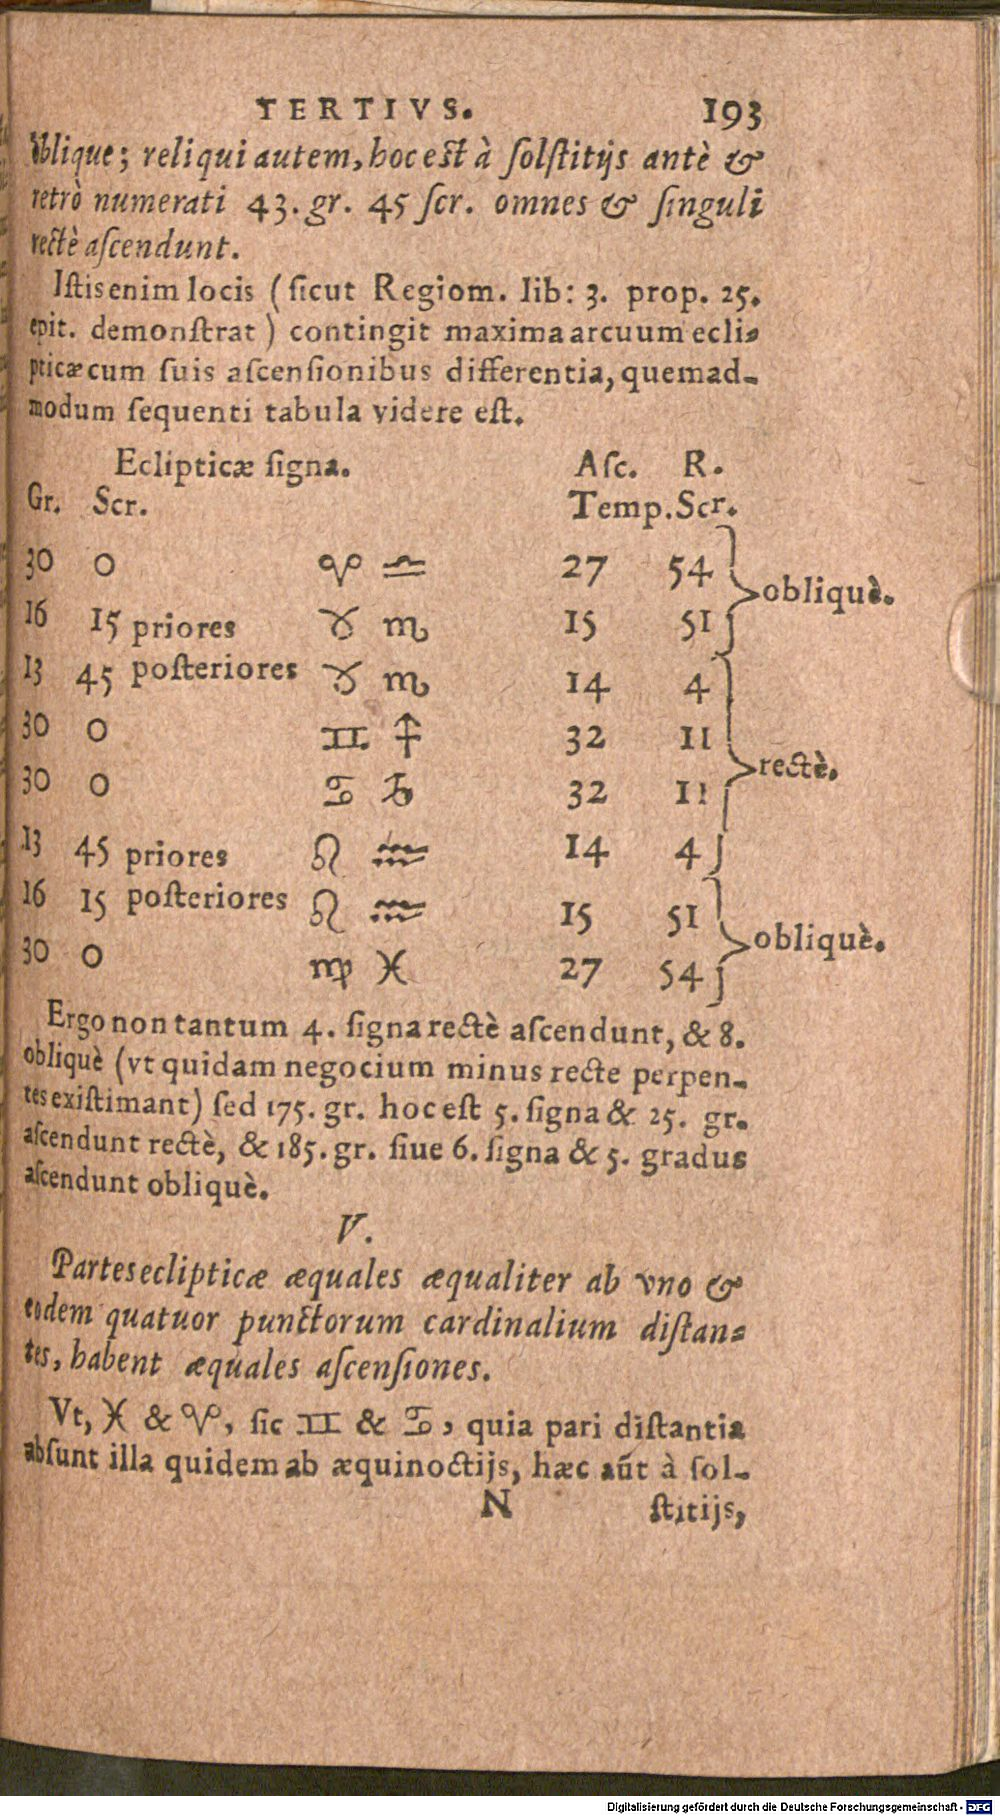 TERTIVS. 193
oblique; reliqui autem, hoc est à ſolſtitijs antè &
retrò numerati 43. gr. 45 ſcr. omnes & ſinguli
rectè aſcendunt.
Iſtis enim locis (ſicut Regiom. lib: 3. prop. 25.
epit. demonſtrat) contingit maxima arcuum ecli⸗
pticæ cum ſuis aſcenſionibus differentia, quemad-
modum ſequenti tabula videre eſt.
Eclipticæ ſigna. Aſc. R.
Gr. Scr. Temp. Scr.
30 0 ♈ ♎ 27 54
16 15 priores ♉ ♏ 15 51
obliquè.
13 45 poſteriores ♉ ♏ 14 4
30 0 ♊ ♐ 32 11
30 0 ♋ ♑ 32 11
13 45 priores ♌ ♒ 14 4
rectè.
16 15 poſteriores ♌ ♒ 15 51
30 0 ♍ ♓ 27 54
obliquè.
Ergo non tantum 4. ſigna rectè aſcendunt, & 8.
obliquè (vt quidam negocium minus recte perpen-
tes exiſtimant) ſed 175. gr. hoc eſt 5. ſigna & 25. gr.
aſcendunt rectè, & 185. gr. ſiue 6. ſigna & 5. gradus
aſcendunt obliquè.
V.
Partes eclipticæ æquales æqualiter ab vno &
eodem quatuor punctorum cardinalium diſtan⸗
tes, habent æquales aſcenſiones.
Vt, ♓ & ♈, ſic ♊ & ♋, quia pari diſtantia
abſunt illa quidem ab æquinoctijs, hæc aũt à ſol-
N ſtitijs,
Digitalisierung gefördert durch die Deutsche Forschungsgemeinschaft - DFG